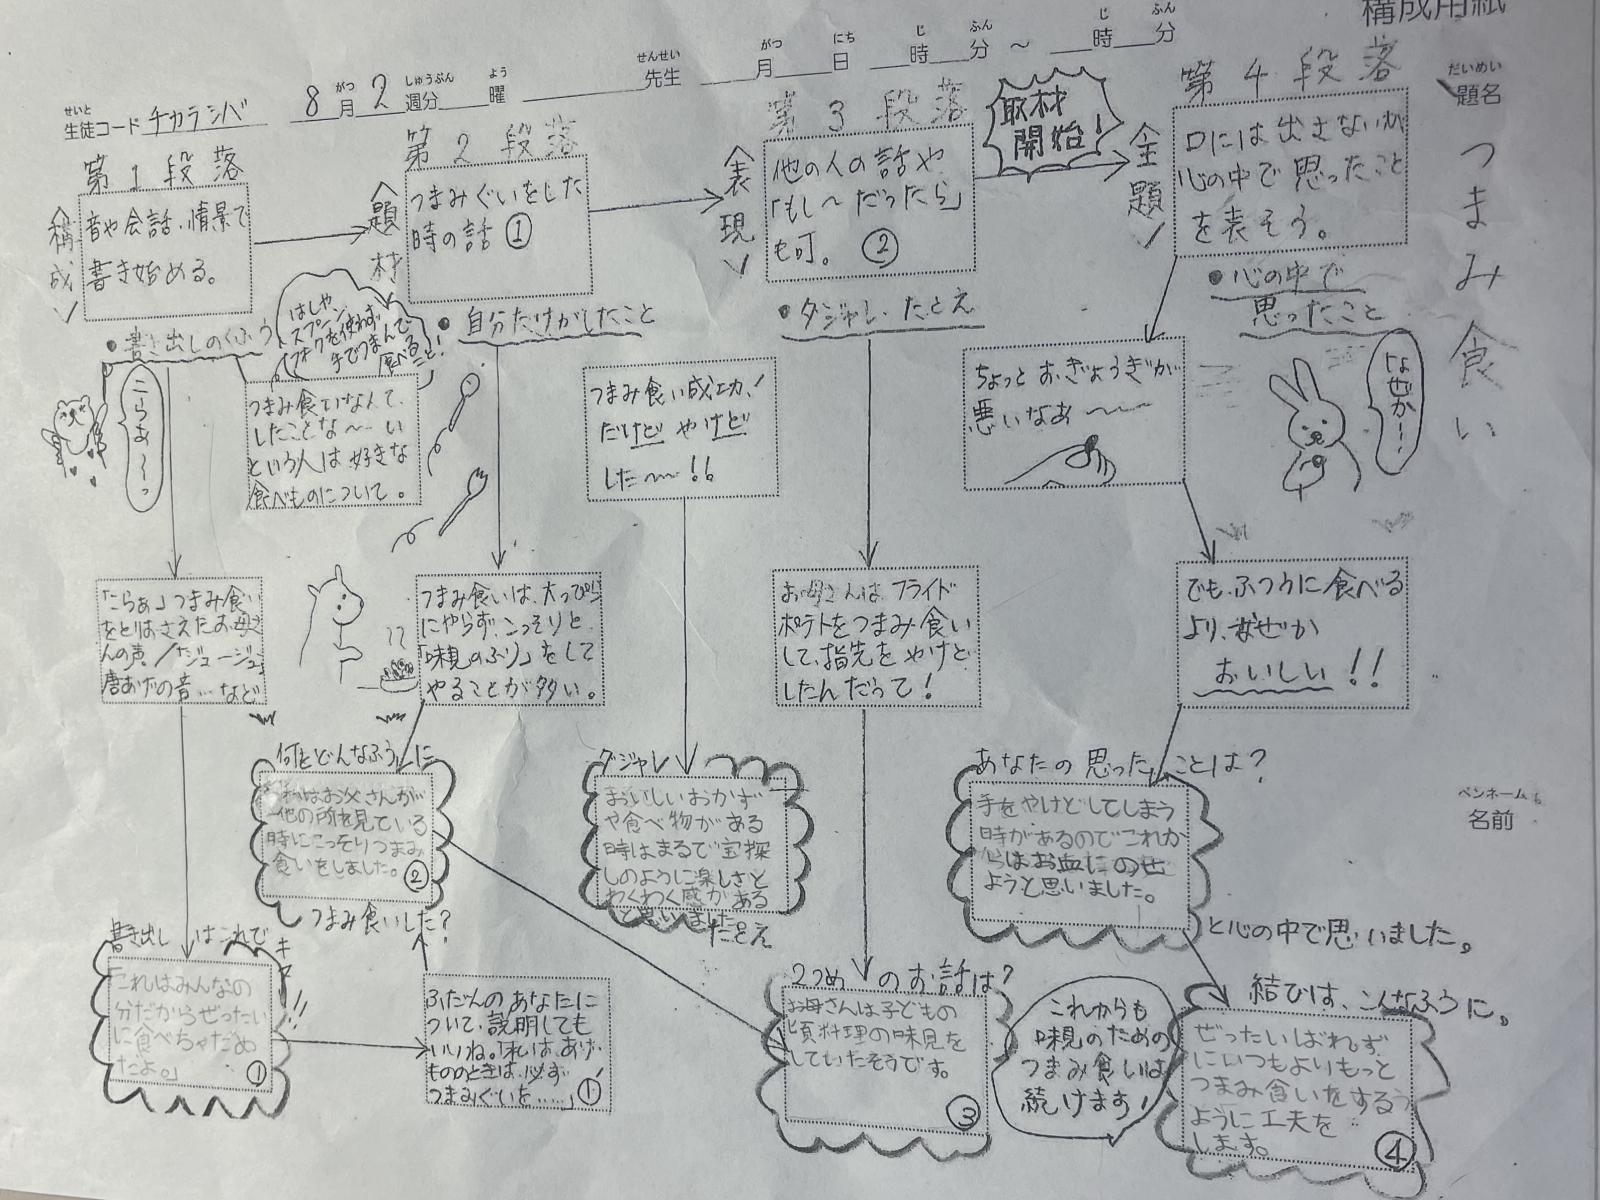 構成用紙
せいと
生徒コード チカラシバ
8月2週分 曜
がつ しゅうぶん よう
せんせい
先生
がつ にち じ ふん じ ふん
月 日 時 分 ～ 時 分
だいめい
題名
つまみ食い
ペンネームも
名前
第1段落
〈構成〉
音や会話、情景で
書き始める。
・書き出しのくふう
こらあ〜っ
はしや
スプーン、
フォクを使わず
手でつまんで
食べること!
つまみ食いなんて、
したことな〜い
という人は好きな
食べものについて。
「こらぁ」つまみ食い
をとりおさえたお母さ
んの声/「ジュージュー」
唐あげの音…など
書き出しはこれで
キマリ!!
「これはみんなの
分だからぜったい
に食べちゃだめ
だよ。」
①
第2段落
〈題材〉
つまみぐいをした
時の話 ①
・自分だけがしたこと
つまみ食いは、大っぴら
にやらず、こっそりと、
「味見のふり」をして
やることが多い。
何をどんなふうに
私はお父さんが
他の所を見ている
時にこっそりつまみ
食いをしました。
②
つまみ食いした?
ふだんのあなたに
ついて、説明しても
いいね。「私は、あげ
もののときは、必ず
つまみぐいを……」
①'
第3段落
〈表現〉
他の人の話や、
「もし〜だったら」
も可。 ②
・ダジャレ・たとえ
つまみ食い成功!
だけど やけど
した〜!!
お母さんは、フライド
ポテトをつまみ食い
して、指先をやけど
したんだって!
ダジャレ
おいしいおかず
や食べ物がある
時はまるで宝探
しのように楽しさと
わくわく感がある
と思いました。
たとえ
2つめのお話は?
お母さんは子どもの
頃料理の味見を
していたそうです。
③
取材
開始!
第4段落
〈主題〉
口には出さないが
心の中で思ったこと
を表そう。
・心の中で
思ったこと
なぜか〜
ちょっとおぎょうぎが
悪いなあ〜〜
でも、ふつうに食べる
より、なぜか
おいしい!!
あなたの思ったことは?
手をやけどしてしまう
時があるのでこれか
らはお皿にのせ
ようと思いました。
と心の中で思いました。
結びは、こんなふうに。
これからも
味見のための
つまみ食いは
続けます!
ぜったいばれず
にいつもよりもっと
つまみ食いをするう
ように工夫を
します。
④